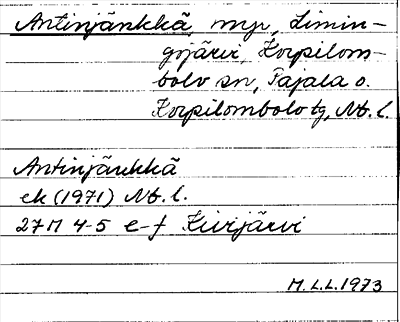 Antinjänkkä, myr, Limin-
gojärvi, Korpilom-
bolo sn, Pajala o.
Korpilombolo tg, Nb. l.
Antinjänkkä
ek (1971) Nb. l.
27M 4-5 e-f Kivijärvi
M.L.L. 1973